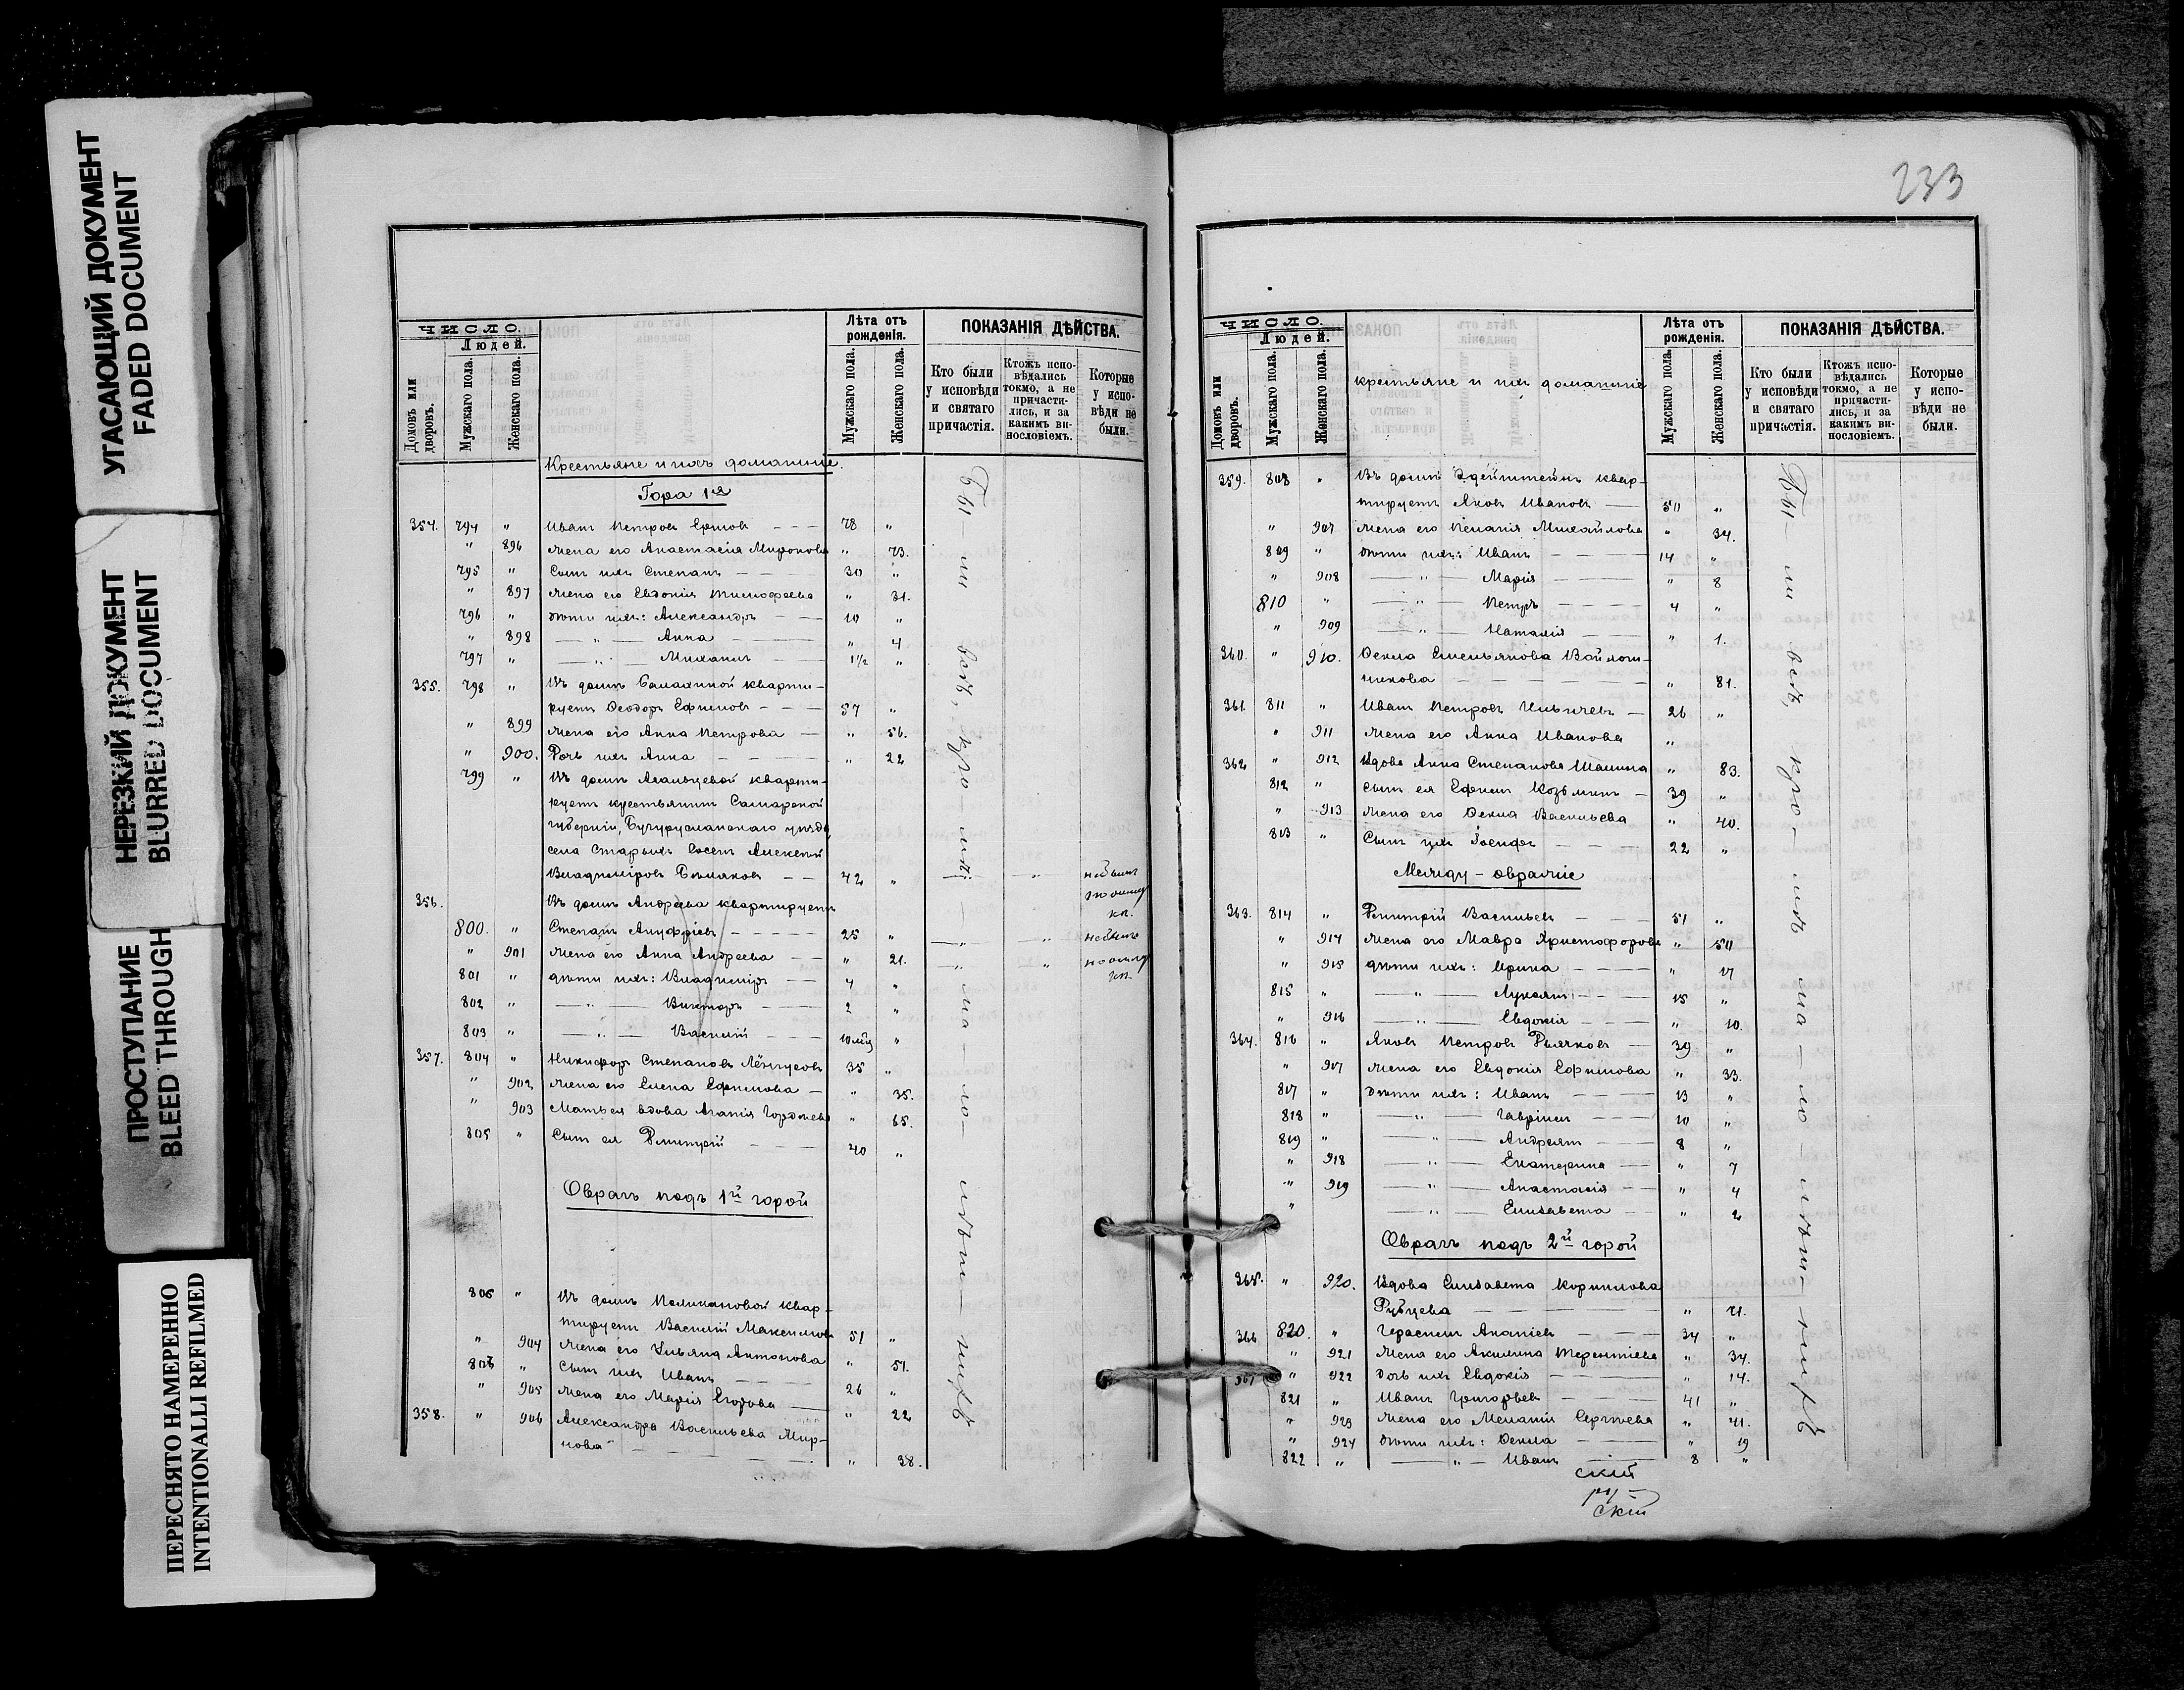 УГАСАЮЩИЙ ДОКУМЕНТ
FADED DOCUMENT
НЕРЕЗКИЙ ДОКУМЕНТ
BLURRED DOCUMENT
ПРОСТУПАНИЕ
BLEED THROUGH
ПЕРЕСНЯТО НАМЕРЕННО
INTENTIONALLI REFILMED
ЧИСЛО.
Людей.
Домовъ или дворовъ.
Мужскаго пола.
Женскаго пола.
Лѣта отъ рожденія.
Мужскаго пола.
Женскаго пола.
ПОКАЗАНІЯ ДѢЙСТВА.
Кто были у исповѣди и святаго причастія.
Ктожъ исповѣдались токмо, а не причастились, и за какимъ винословіемъ.
Которые у исповѣди не были.
Крестьяне и ихъ домашніе.
Гора 1ая
354. 794 " Иванъ Петровъ Ершовъ 78 "
" 896 Жена его Анастасія Миронова " 73.
795 " Сынъ ихъ Степанъ 30 "
" 897 Жена его Евдокія Тимофеева " 31.
796 " Дѣти ихъ: Александръ 10 "
" 898 " Анна " 4
797 " " Михаилъ 1½ "
355. 798 " Въ домѣ Балахиной кварти-
руетъ Ѳеодоръ Ефимовъ 57 "
" 899 Жена его Анна Петрова " 56.
" 900. Дочь ихъ Анна " 22
799 " Въ домѣ кварти-
руетъ крестьянинъ Самарской
губерніи, Бугурусланскаго уѣзда
села Старыхъ Алексѣй
Владиміровъ 42 "
356. Въ домѣ Андреева квартируетъ
800. " Степанъ Ануфріевъ 25 "
" 901 Жена его Анна Андреева " 21.
801 " дѣти ихъ: Владиміръ 4 "
802 " " Викторъ 2 "
803 " " Василій 10 мѣс "
357. 804 " Никифоръ Степановъ 35 "
" 902 Жена его Елена Ефимова " 35.
" 903 Мать ея вдова Агапія Гордѣева " 65.
805 " Сынъ ея Дмитрій 40 "
Оврагъ подъ 1й горой
806 " Въ домѣ Поликановой квар-
тируетъ Василій Максимовъ 51 "
" 904 Жена его Ульяна Антонова " 51.
806 " Сынъ ихъ Иванъ 26 "
" 905 Жена его Марія Егорова " 22
358. " 906 Александра Васильева Мир-
нова " 38.
Бы — ли всѣ, кро — мѣ ма — ло — лѣт — нихъ
233
ЧИСЛО.
Людей.
Домовъ или дворовъ.
Мужскаго пола.
Женскаго пола.
крестьяне и ихъ домашніе
Лѣта отъ рожденія.
Мужскаго пола.
Женскаго пола.
ПОКАЗАНІЯ ДѢЙСТВА.
Кто были у исповѣди и святаго причастія.
Ктожъ исповѣдались токмо, а не причастились, и за какимъ винословіемъ.
Которые у исповѣди не были.
359. 808 " Въ домѣ квар-
тируетъ Яковъ Ивановъ 50 "
" 907 Жена его Меланія Михайлова " 34.
809 " Дѣти ихъ: Иванъ 14 "
" 908 " Марія " 8
810 " " Петръ 4 "
" 909 " Наталія " 1.
360. " 910. Ѳекла Емельянова Войлош-
никова " 81.
361. 811 " Иванъ Петровъ Ильичевъ 26 "
" 911 Жена его Анна Иванова "
362 " 912 Вдова Анна Степанова Шашина " 83.
812 " Сынъ ея Ефимъ Козьминъ 39 "
" 913 Жена его Ѳекла Васильева " 40.
813 " Сынъ ихъ Іосифъ 22 "
Между-овражіе
363. 814 " Дмитрій Васильевъ 51 "
" 914 Жена его Мавра Христофорова " 50
" 915 дѣти ихъ: Ирина " 17
815 " " Лукьянъ 15 "
" 916 " Евдокія " 10.
364. 816 " Яковъ Петровъ Дьячковъ 39 "
" 917 Жена его Евдокія Ефимова " 33.
817 " Дѣти ихъ: Иванъ 13 "
818 " " Гавріилъ 10 "
819 " " Андреянъ 8 "
" 918 " Екатерина " 7
" 919 " Анастасія " 4
" " Елизавета " 2
Оврагъ подъ 2й горой
365. " 920. Вдова Елизавета Корнилова
Рубцева " 71.
366 820. " Герасимъ Ананіевъ 34 "
" 921 Жена его Акилина Терентіева " 34.
" 922 Дочь ихъ Евдокія " 14.
367 821 " Иванъ Григорьевъ 41 "
" 923 Жена его Меланія Сергѣева " 41.
" 924 Дѣти ихъ: Ѳекла " 19
822 " " Иванъ 8 "
Бы — ли всѣ, кро — мѣ ма — ло — лѣт — нихъ
скій
скій